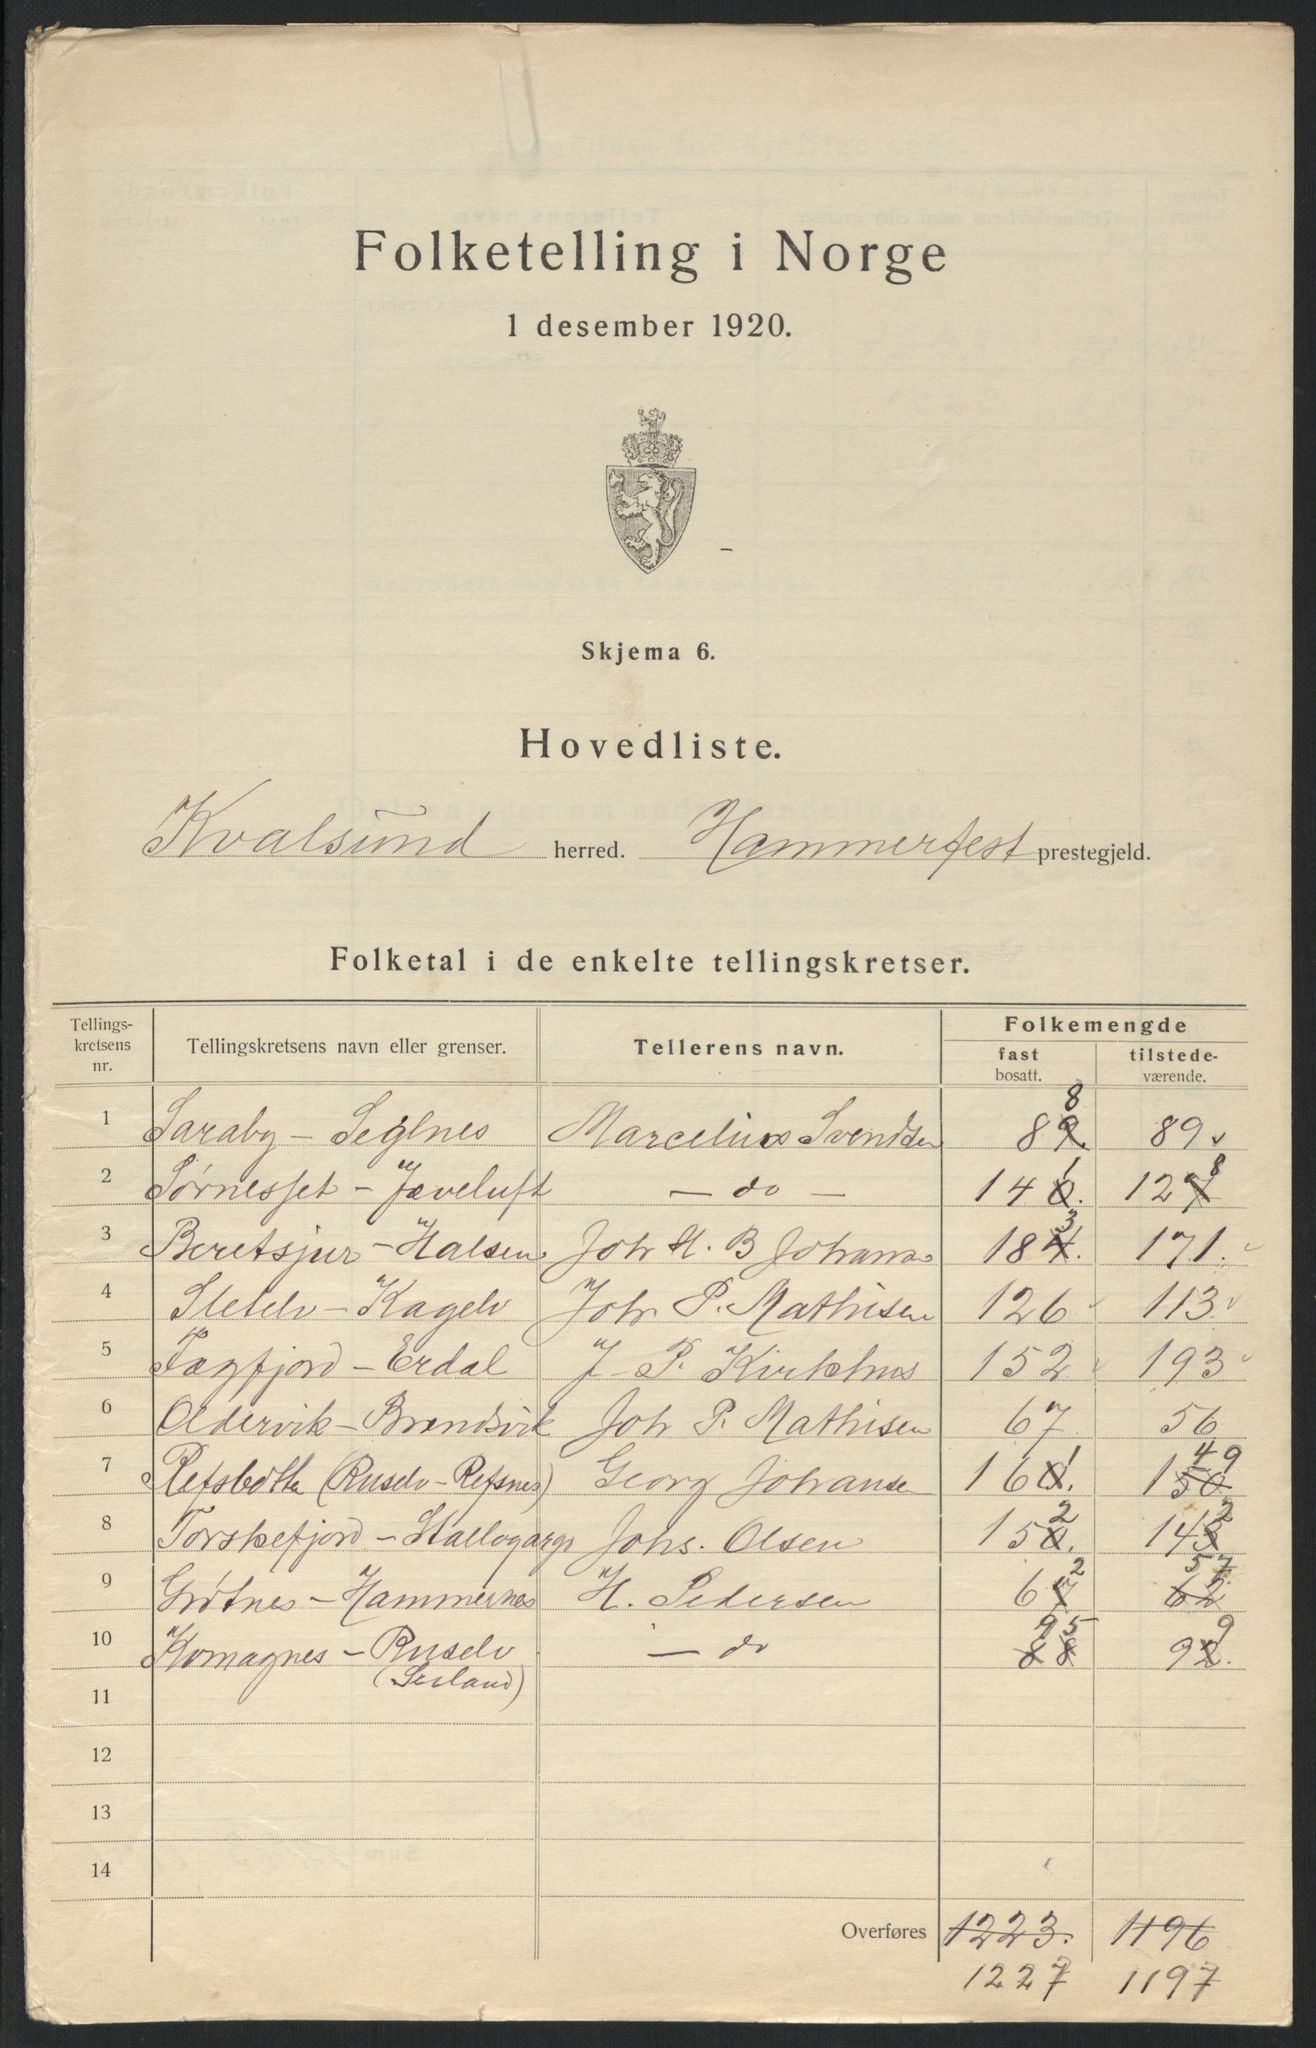 Folketelling i Norge
1 desember 1920.
Skjema 6.
Hovedliste.
Kvalsund herred. Hammerfest prestegjeld.
Folketal i de enkelte tellingskretser.
Tellings-
kretsens
nr.
Tellingskretsens navn eller grenser.
Tellerens navn.
Folkemengde
fast
bosatt.
tilstede-
værende.
1 Saraby - Seglnes Marcelius Svendsen 89. 8 89
2 Sørnesset - Jæveluft - do - 140. 1 127 8
3 Beretsjur - Halsen Joh H. B Johanns 184. 3 171.
4 Sletelv - Kagelv Joh P. Mathisen 126 113
5 Fægfjord - Erdal J. P. Kirkhus 152 193
6 Oldervik - Brandsvik Joh P. Mathisen 67 56
7 Refsbotn (Ruselv - Refsnes) Georg Johansen 160. 1 150 49
8 Torskefjord - Stallogargo Johs. Olsen 150. 2 143 2
9 Grøtnes - Hammernes H. Pedersen 67 2 62 57
10 Komagnes - Ruselv - do 88 95 92. 9
(Seiland)
11
12
13
14
Overføres 1223. 1196
1227 1197